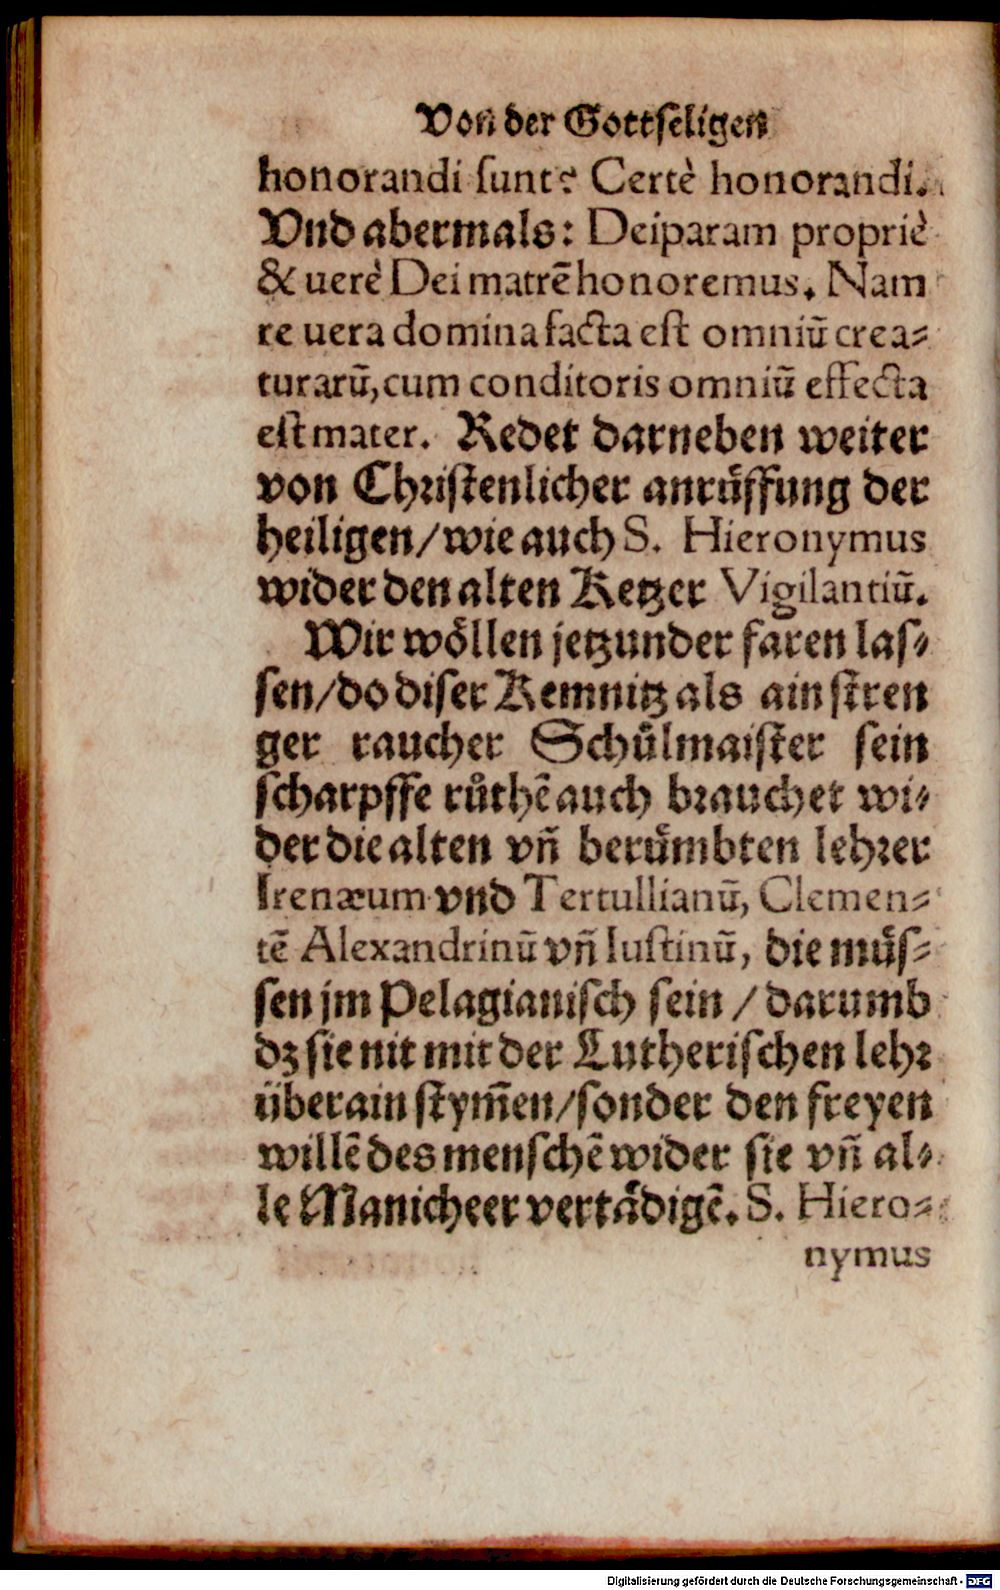 Von der Gottseligen
honorandi sunt? Certè honorandi.
Vnd abermals: Deiparam propriè
& uerè Dei matrẽ honoremus. Nam
re uera domina facta est omniũ crea⸗
turarũ, cum conditoris omniũ effecta
est mater. Redet darneben weiter
von Christenlicher anrůffung der
heiligen/wie auch S. Hieronymus
wider den alten Ketzer Vigilantiũ.
Wir wöllen jetzunder faren las⸗
sen/do diser Kemnitz als ain stren
ger raucher Schůlmaister sein
scharpffe růthẽ auch brauchet wi⸗
der die alten vñ berůmbten lehrer
Irenæum vnd Tertullianũ, Clemen⸗
tẽ Alexandrinũ vñ Iustinũ, die můs⸗
sen jm Pelagianisch sein / darumb
dz sie nit mit der Lutherischen lehr
überain stym̃en/sonder den freyen
willẽ des menschẽ wider sie vñ al⸗
le Manicheer vertädigẽ. S. Hiero⸗
nymus
Digitalisierung gefördert durch die Deutsche Forschungsgemeinschaft - DFG